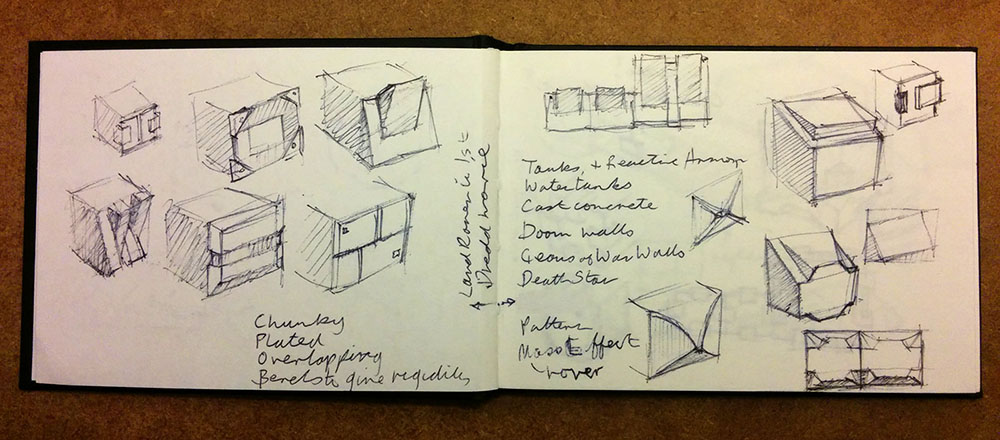 Chunky
Plated
Overlapping
Bevels to give rigidity
Land Rover in 1st
Dredd movie
Tanks, + Reactive Armor
Watertanks
Cast concrete
Doom walls
Gears of War Walls
Death Star
Pattern
Mass Effect
rover